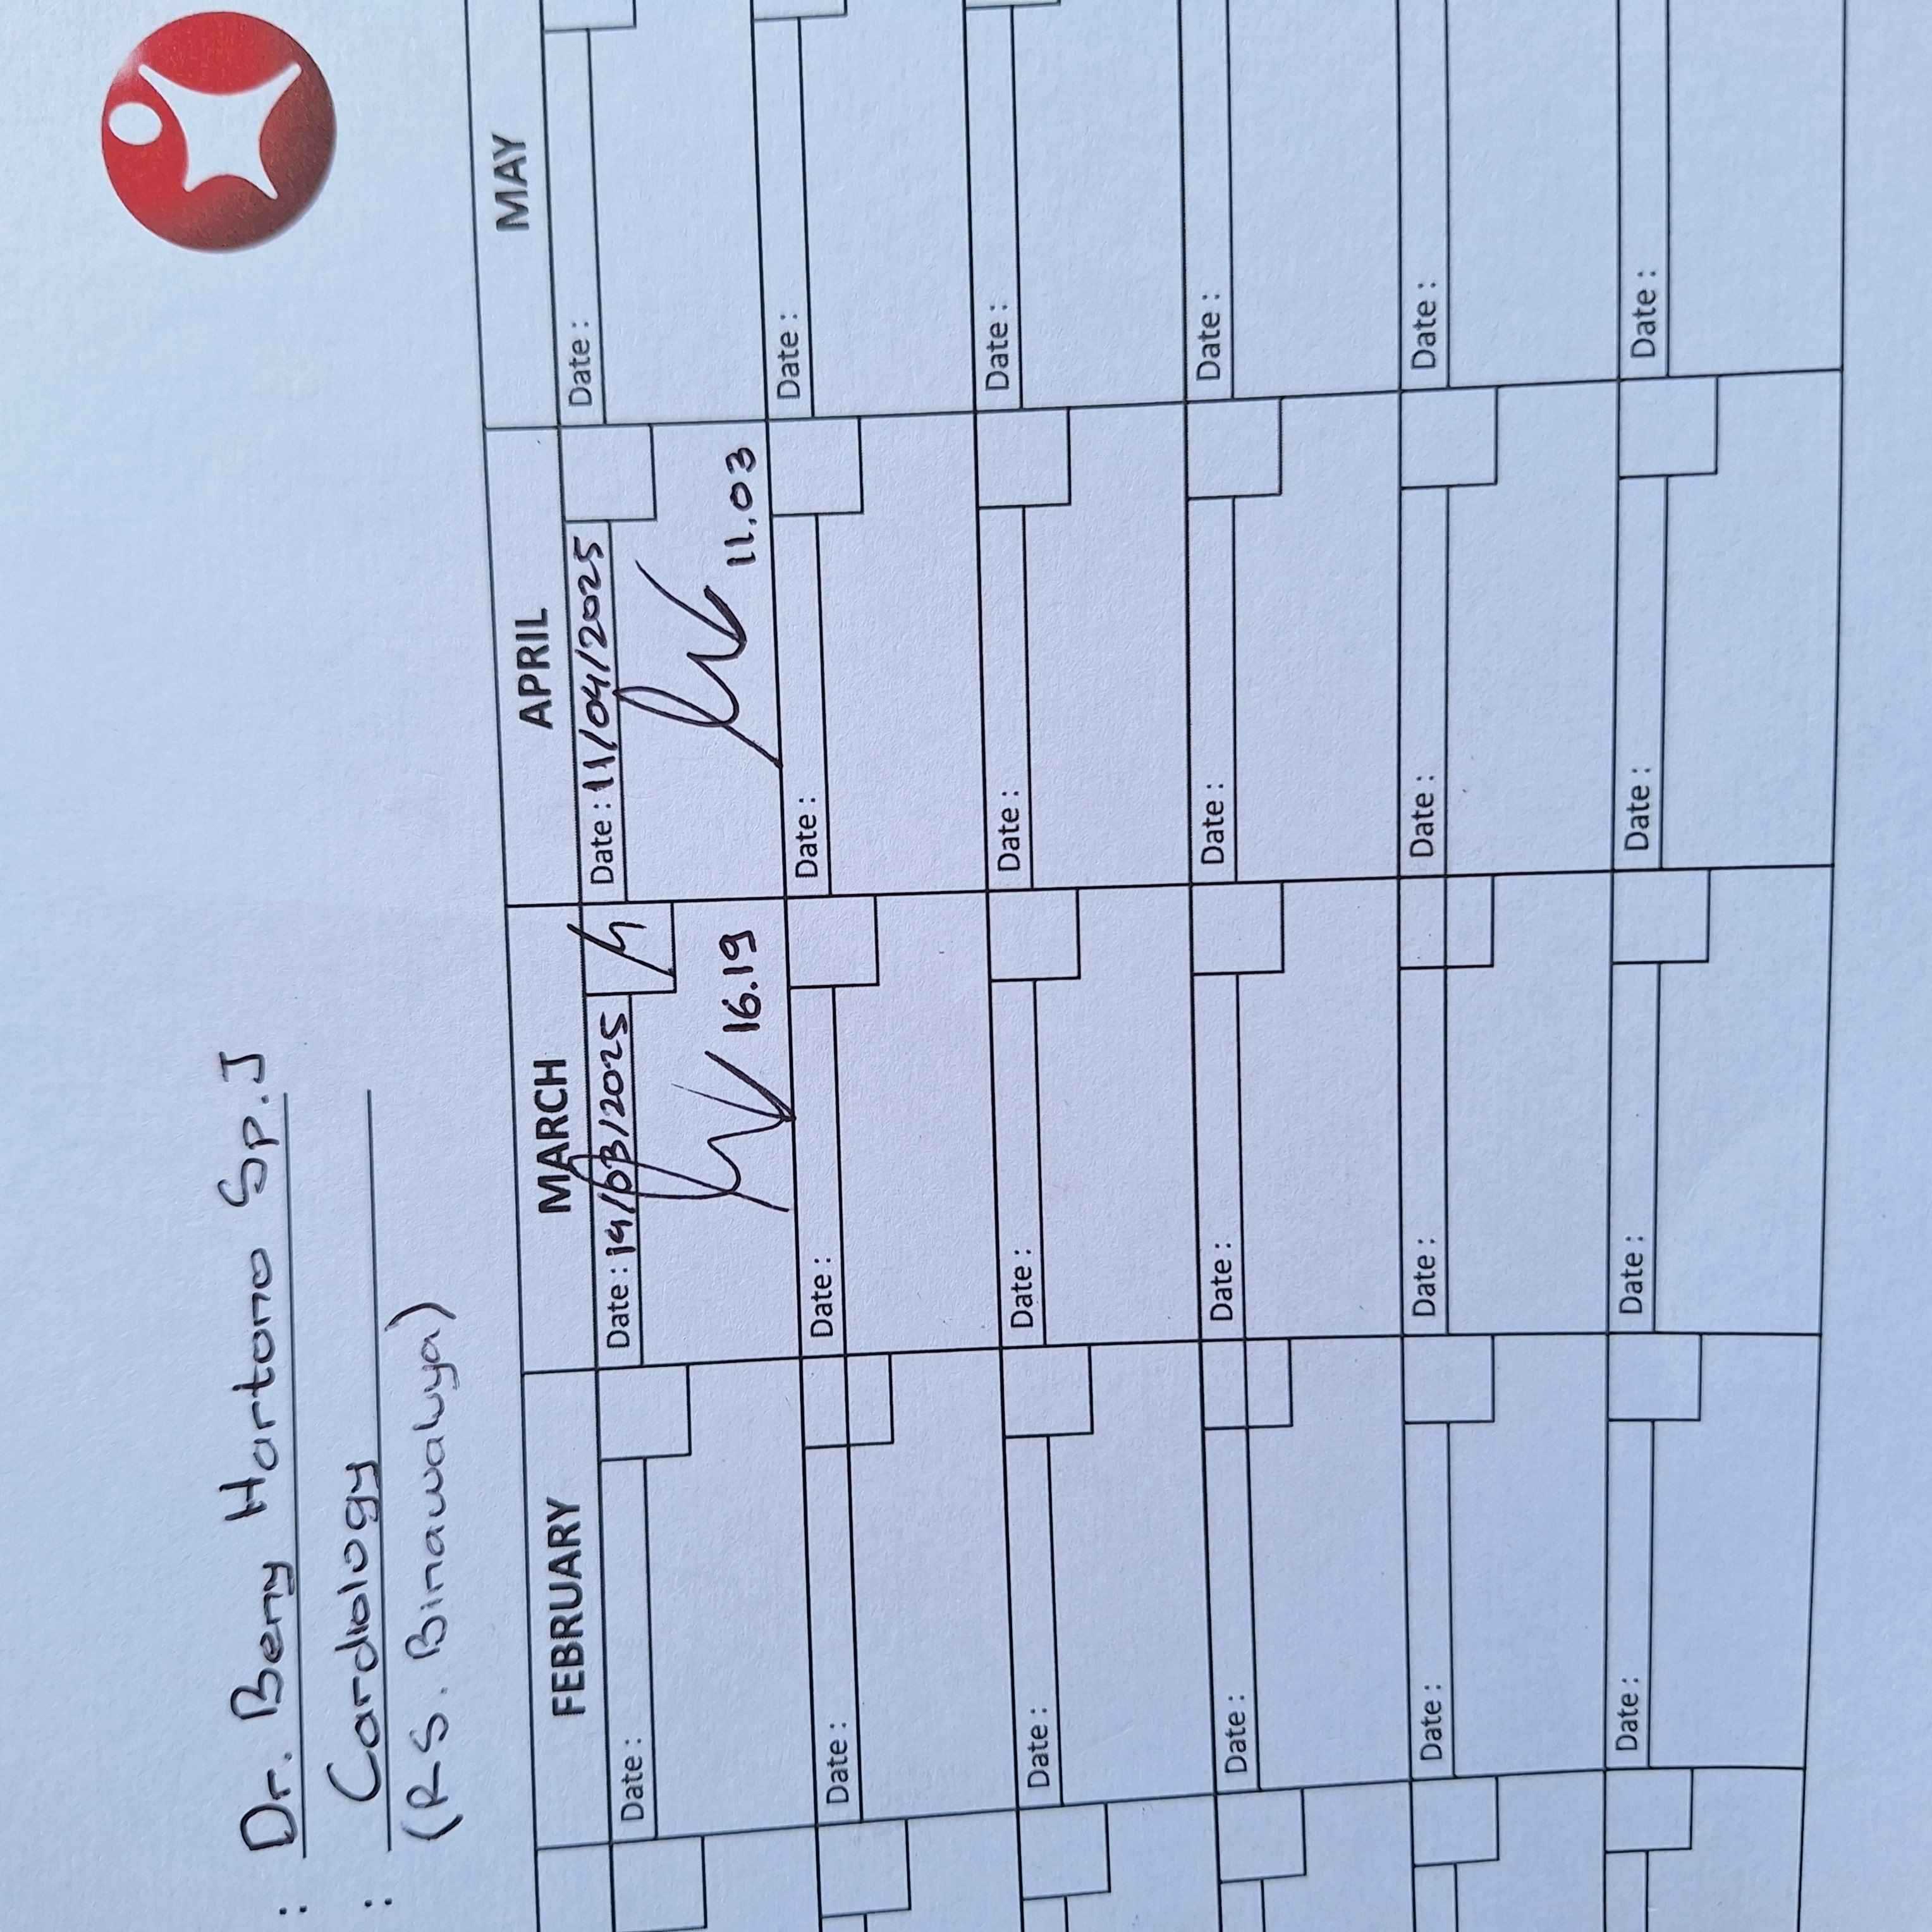 : Dr. Beny Hartono Sp.J
: Cardiology
(RS. Binawaluya)
FEBRUARY MARCH APRIL MAY
Date : Date : 14/03/2025 Date : 11/04/2025 Date :
16.19 11.03
Date : Date : Date : Date :
Date : Date : Date : Date :
Date : Date : Date : Date :
Date : Date : Date : Date :
Date : Date : Date : Date :